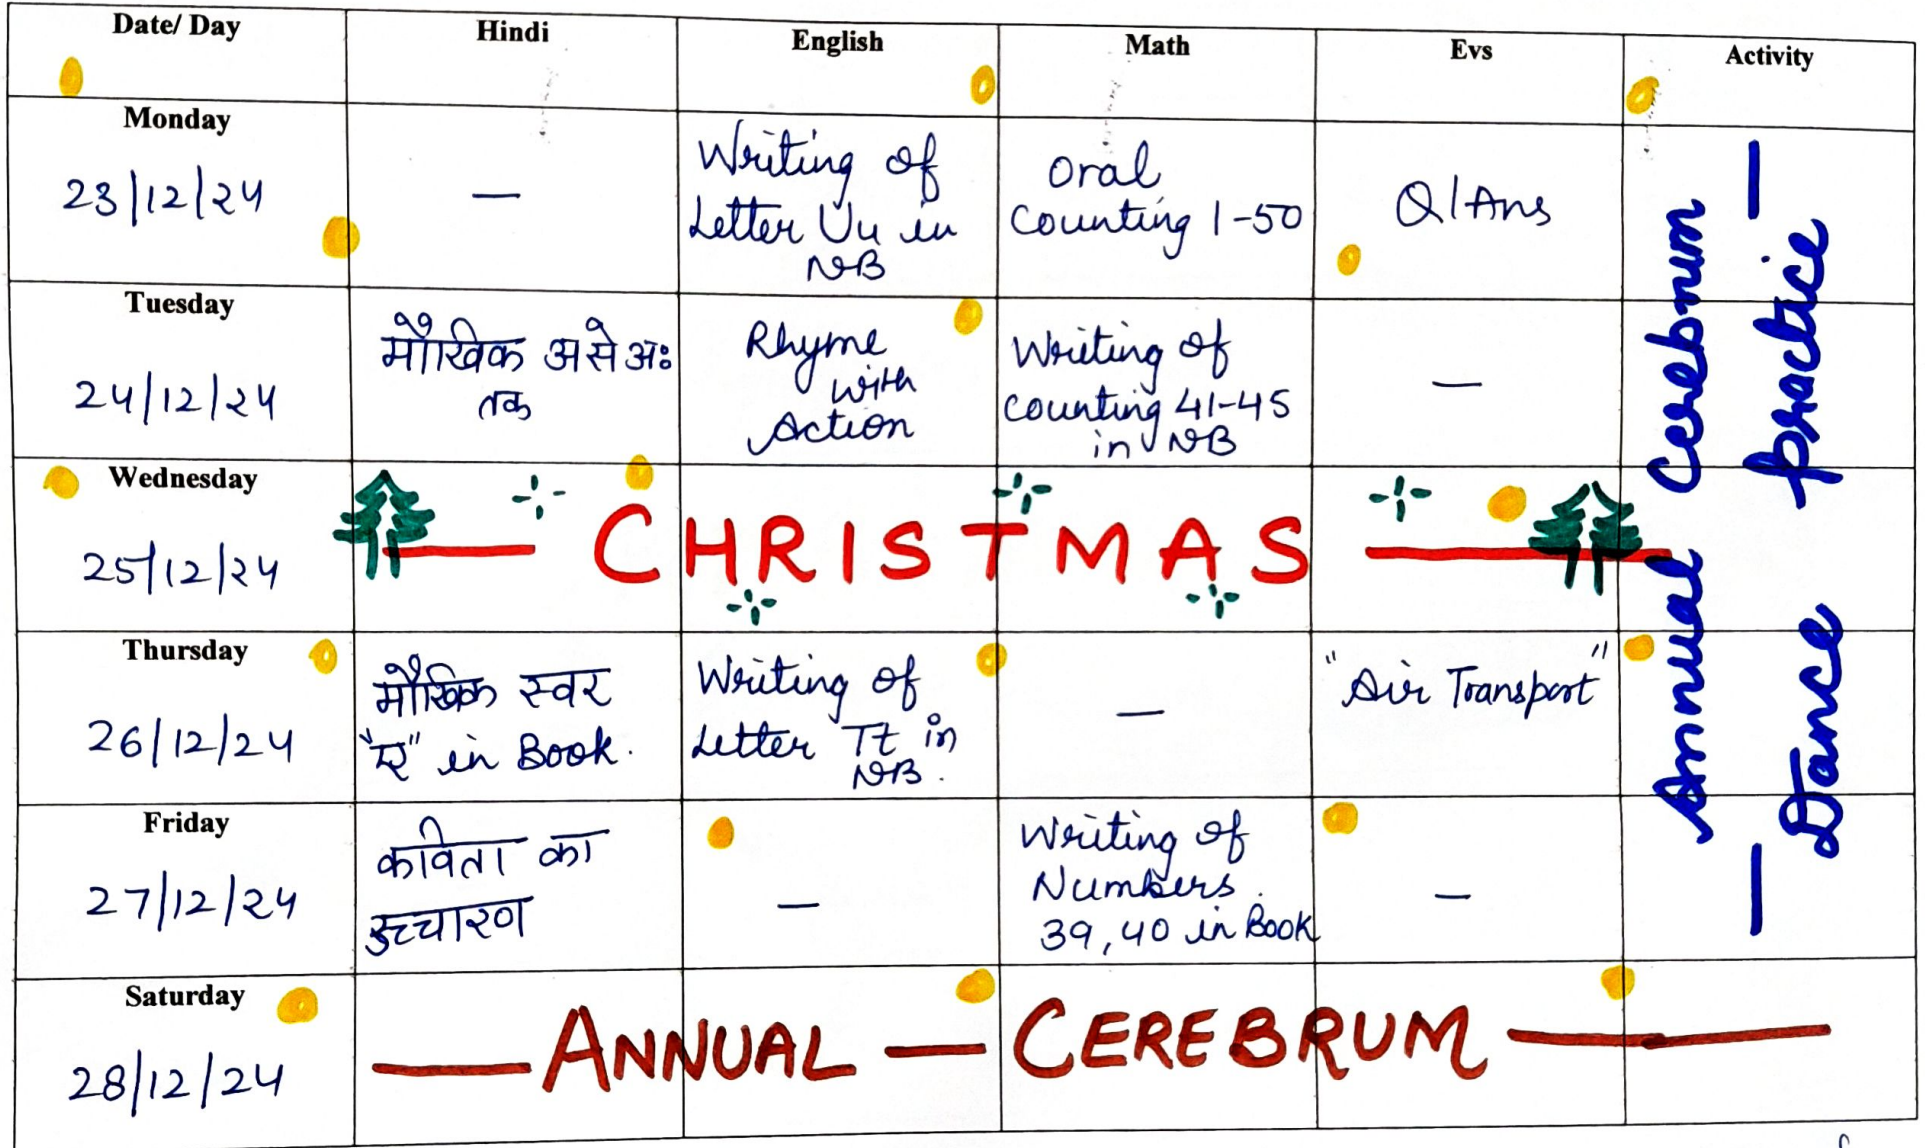 Date/ Day Hindi English Math Evs Activity
Monday
23/12/24
—
Writing of
Letter Uu in
NB
Oral
Counting 1-50
Q/Ans
Tuesday
24/12/24
मौखिक अ से अः
तक
Rhyme
with
Action
Writing of
counting 41-45
in NB
—
Wednesday
25/12/24
— CHRISTMAS —
Thursday
26/12/24
मौखिक स्वर
"ऐ" in Book.
Writing of
Letter Tt in
NB.
—
"Air Transport"
Friday
27/12/24
कविता का
उच्चारण
—
Writing of
Numbers
39,40 in Book
—
Annual Cerebrum
— Dance practice —
Saturday
28/12/24
— ANNUAL — CEREBRUM —